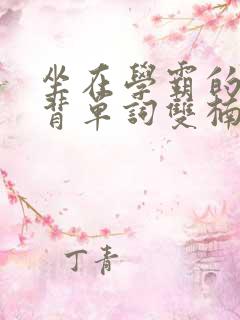 坐在學霸的
背單詞雙楠
丁青